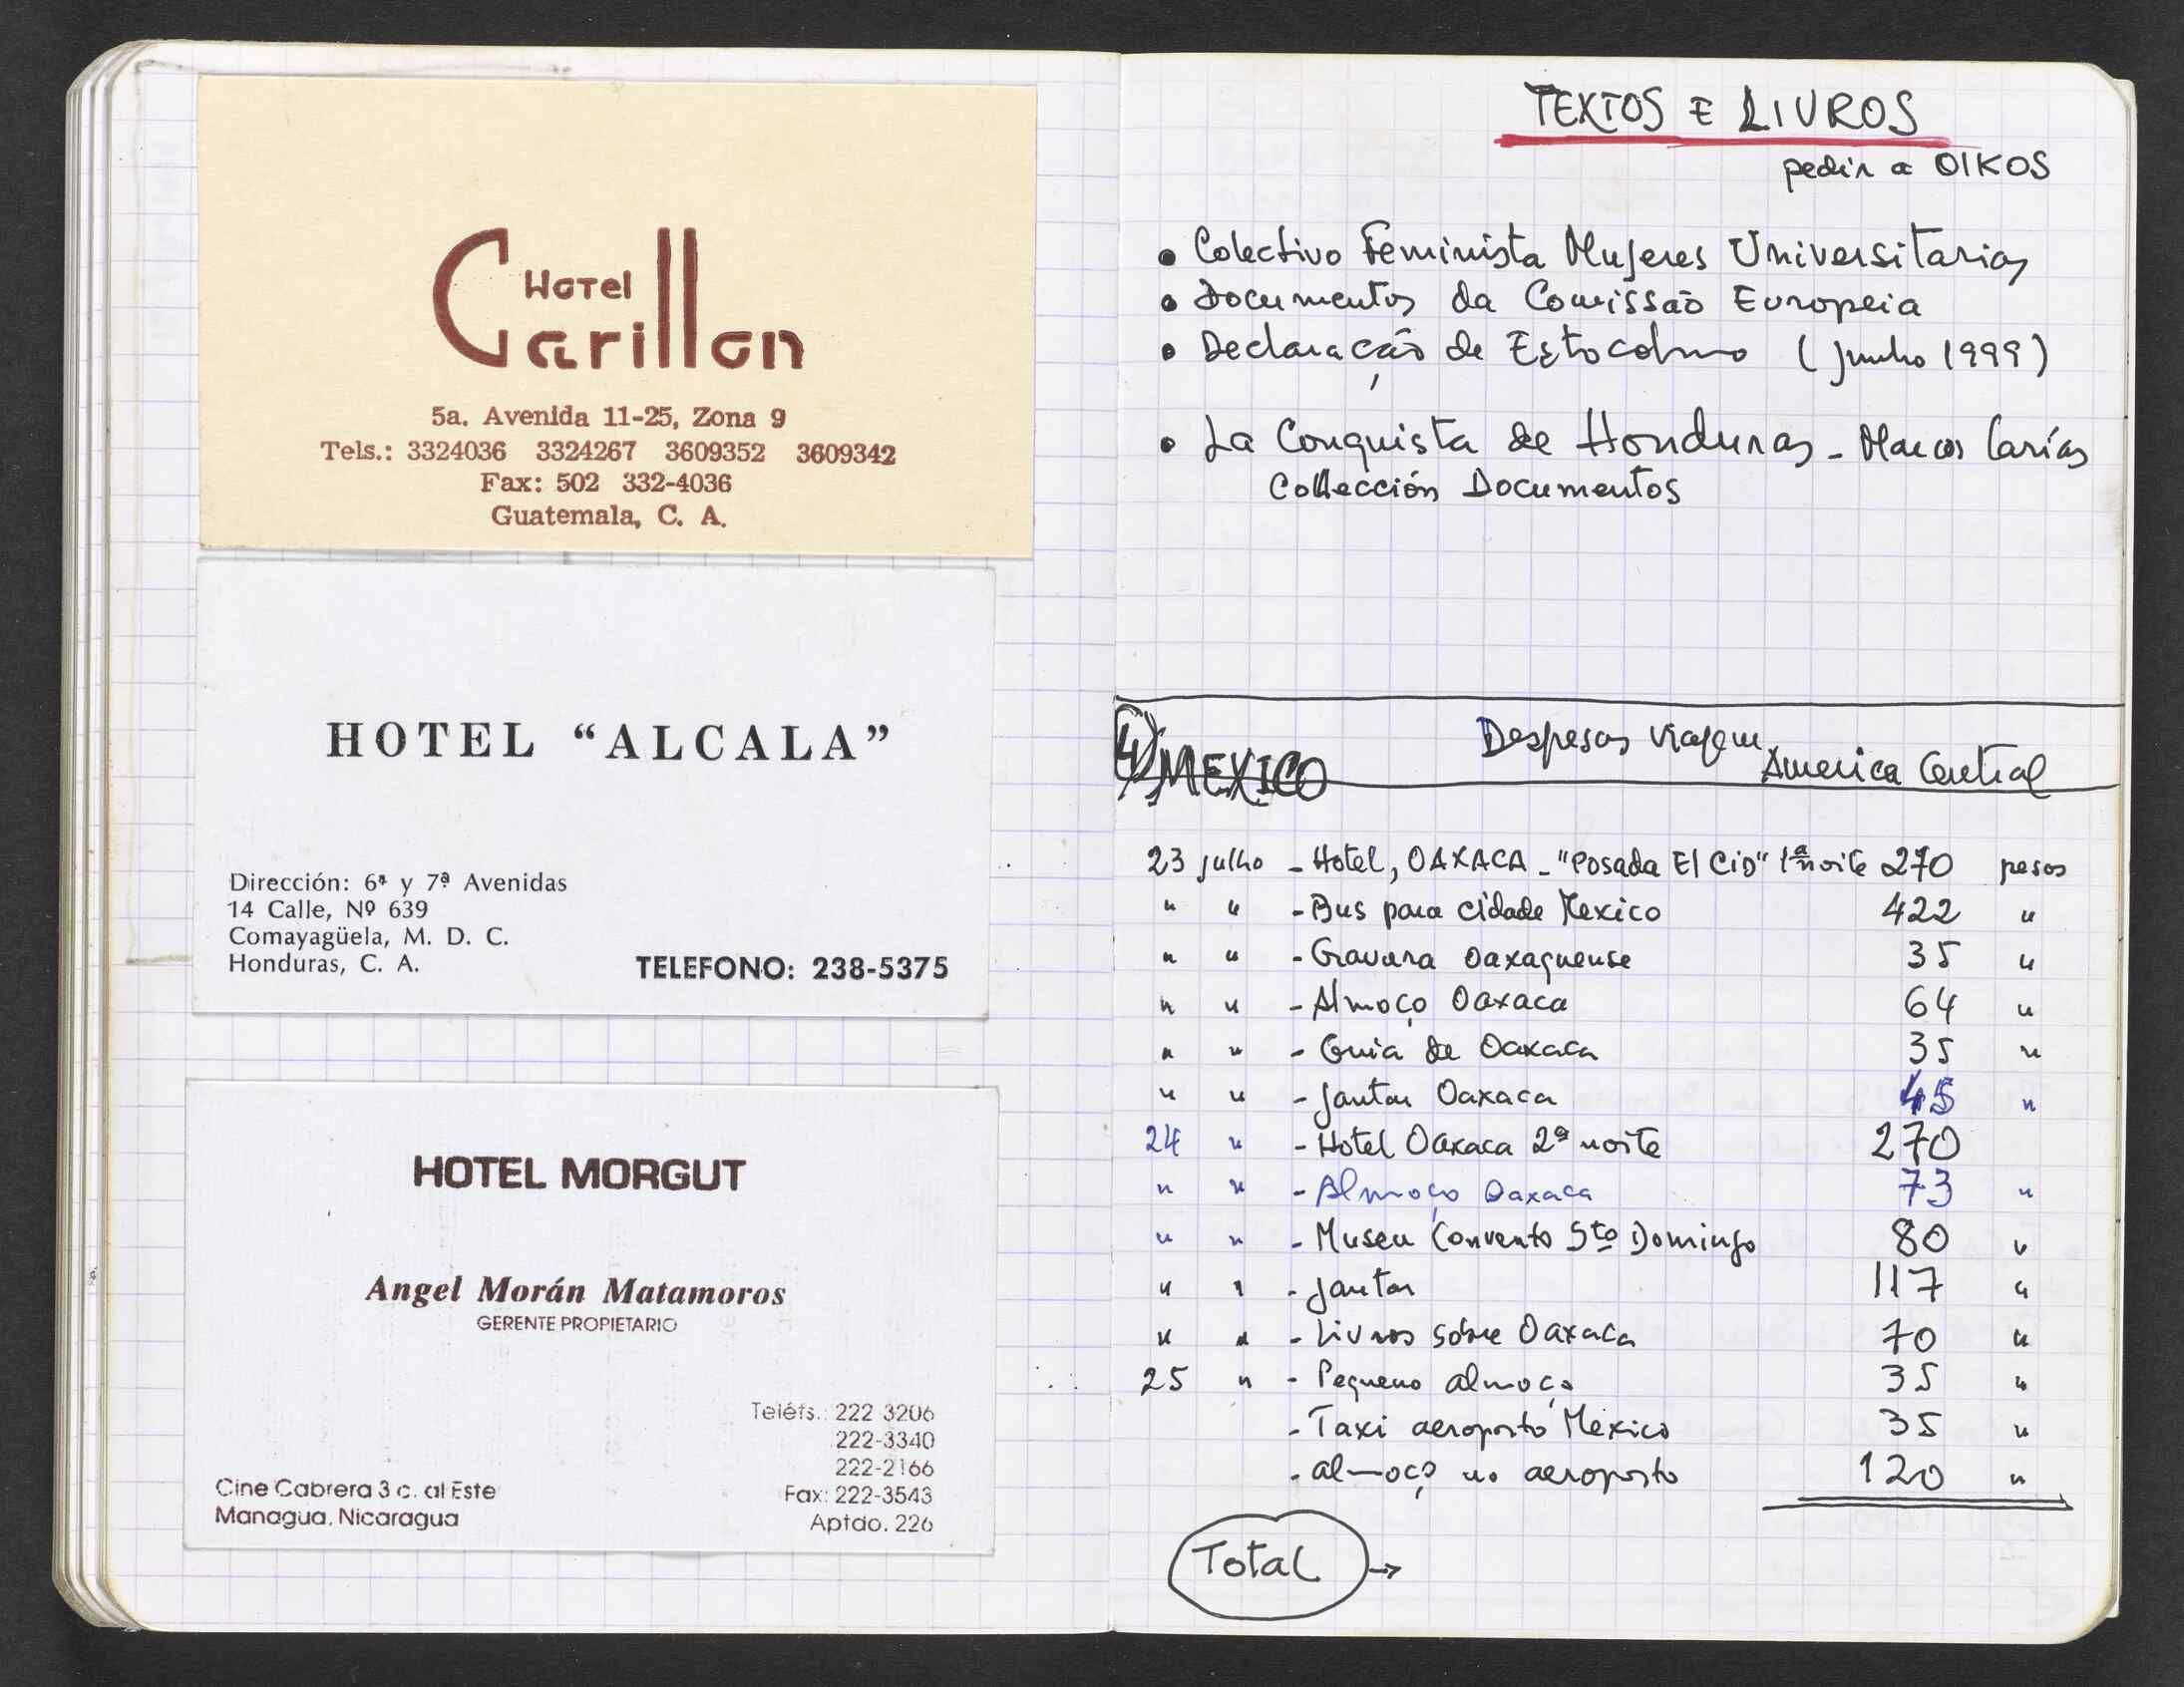 Hotel
Carillon
5a. Avenida 11-25, Zona 9
Tels.: 3324036 3324267 3609352 3609342
Fax: 502 332-4036
Guatemala, C. A.
HOTEL “ALCALA”
Dirección: 6ª y 7ª Avenidas
14 Calle, Nº 639
Comayagüela, M. D. C.
Honduras, C. A.
TELEFONO: 238-5375
HOTEL MORGUT
Angel Morán Matamoros
GERENTE PROPIETARIO
Teléfs.: 222 3206
222-3340
222-2166
Fax: 222-3543
Aptdo. 226
Cine Cabrera 3 c. al Este
Managua, Nicaragua
TEXTOS E LIVROS
pedir a OIKOS
• Colectivo Feminista Mujeres Universitarias
• Documentos da Comissão Europeia
• Declaração de Estocolmo (junho 1999)
• La Conquista de Honduras - Marcos Carías
Collección Documentos
4) MEXICO
Despesas viagem
America Central
23 julho - Hotel, OAXACA - "Posada El Cid" 1ª noite 270 pesos
" " - Bus para cidade Mexico 422 "
" " - Gravura Oaxaquense 35 "
" " - Almoço Oaxaca 64 "
" " - Guia de Oaxaca 35 "
" " - Jantar Oaxaca 45 "
24 " - Hotel Oaxaca 2ª noite 270
" " - Almoço Oaxaca 73 "
" " - Museu Convento Sto Domingo 80 "
" " - Jantar 117 "
" " - Livros sobre Oaxaca 70 "
25 " - Pequeno almoço 35 "
- Taxi aeroporto Mexico 35 "
- almoço no aeroporto 120 "
Total →